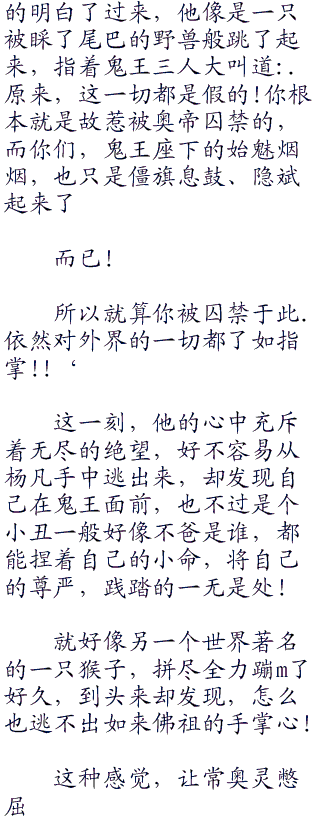 的明白了过来，他像是一只
被睬了尾巴的野兽般跳了起
来，指着鬼王三人大叫道:.
原来，这一切都是假的!你根
本就是故惹被奥帝囚禁的，
而你们，鬼王座下的始魅烟
烟，也只是僵旗息鼓、隐斌
起来了
而已!
所以就算你被囚禁于此.
依然对外界的一切都了如指
掌!!‘
这一刻，他的心中充斥
着无尽的绝望，好不容易从
杨凡手中逃出来，却发现自
己在鬼王面前，也不过是个
小丑一般好像不爸是谁，都
能捏着自己的小命，将自己
的尊严，践踏的一无是处!
就好像另一个世界著名
的一只猴子，拼尽全力蹦m了
好久，到头来却发现，怎么
也逃不出如来佛祖的手掌心!
这种感觉，让常奥灵憋
屈